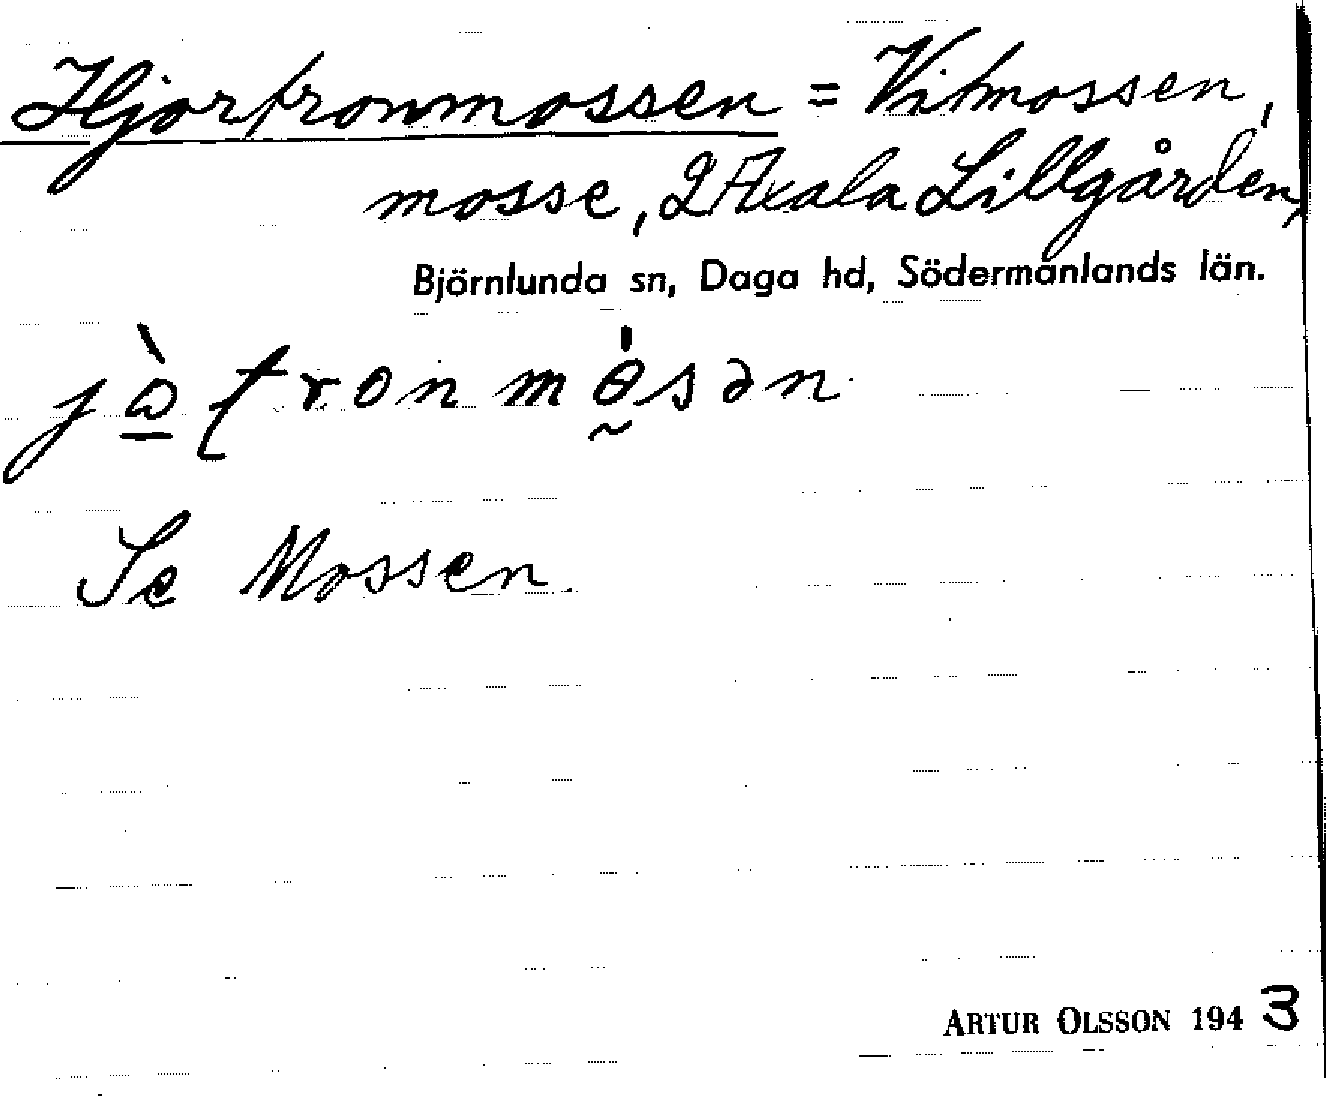 Hjortronmossen = Vitmossen,
mosse, 2 Axala Lillgården,
Björnlunda sn, Daga hd, Södermanlands län.
Se Mossen.
ARTUR OLSSON 1943